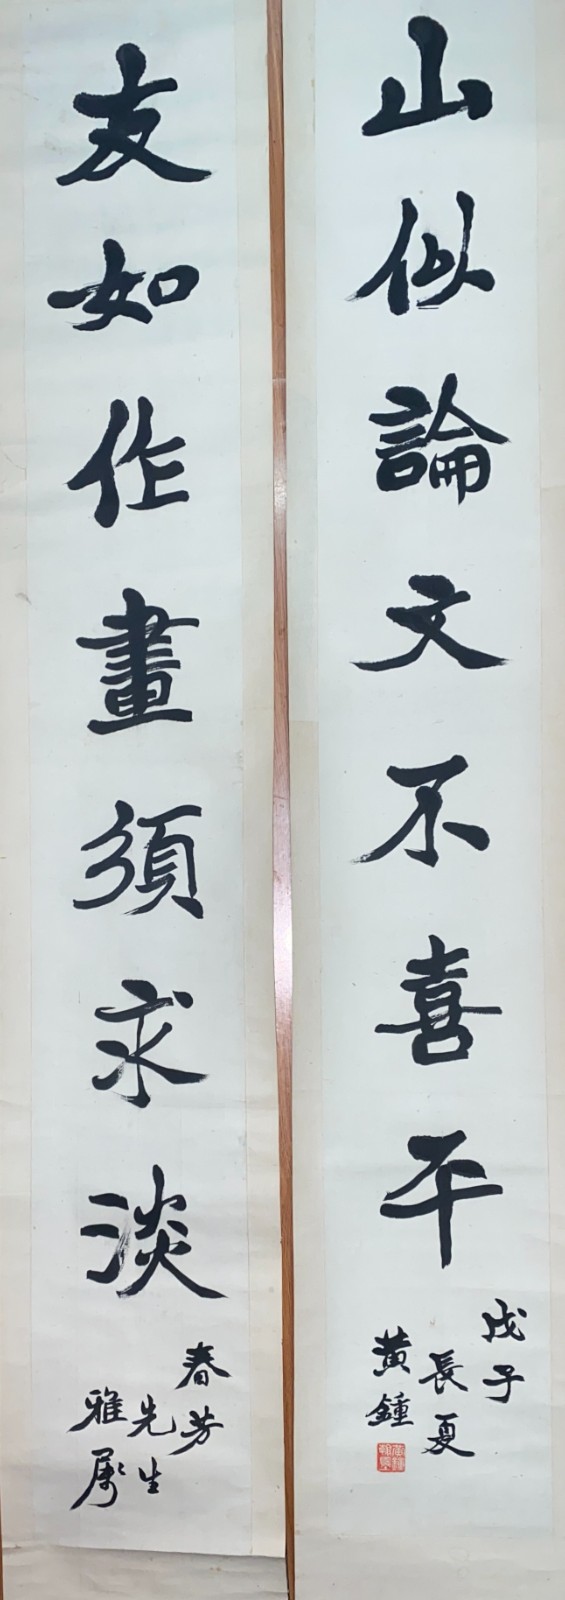 山似論文不喜平
戊子
長夏
黃鍾
友如作畫須求淡
春芳
先生
雅屬